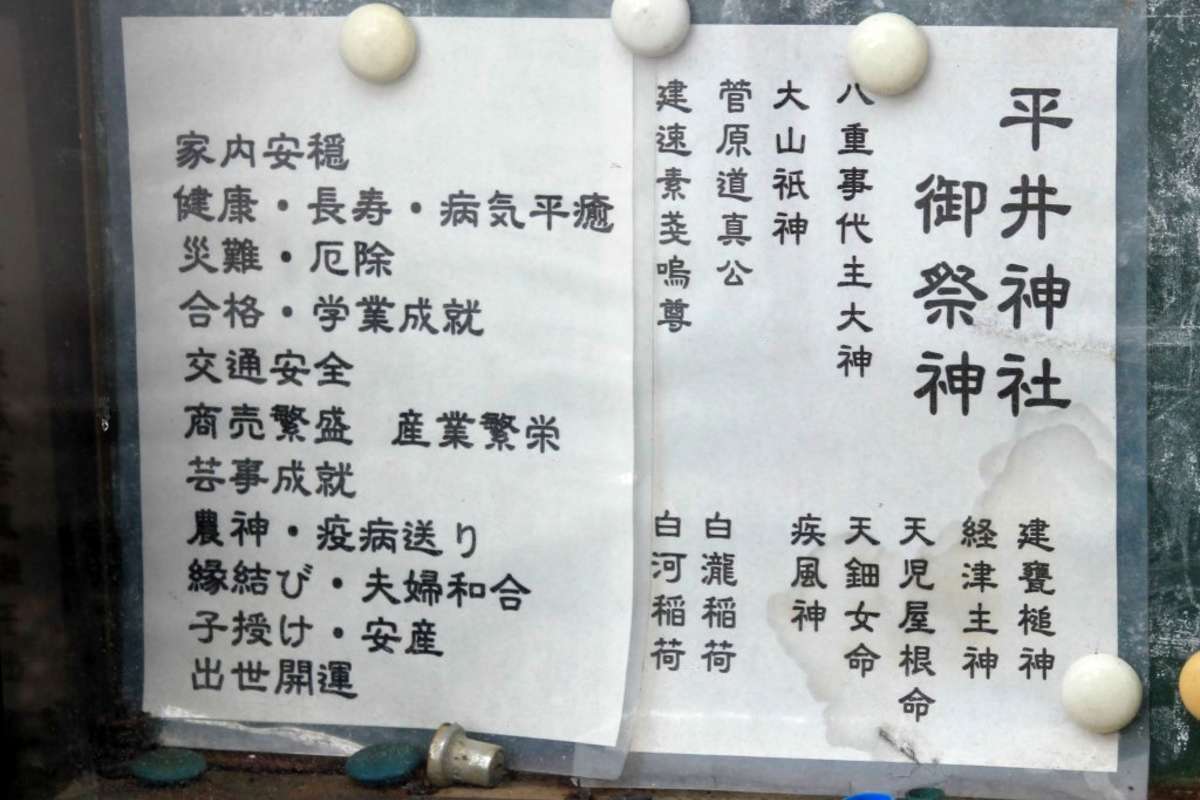 平井神社
御祭神
八重事代主大神
大山祇神
菅原道真公
建速素戔嗚尊
建甕槌神
経津主神
天児屋根命
天鈿女命
疾風神
白瀧稲荷
白河稲荷
家内安穏
健康・長寿・病気平癒
災難・厄除
合格・学業成就
交通安全
商売繁盛　産業繁栄
芸事成就
農神・疫病送り
縁結び・夫婦和合
子授け・安産
出世開運